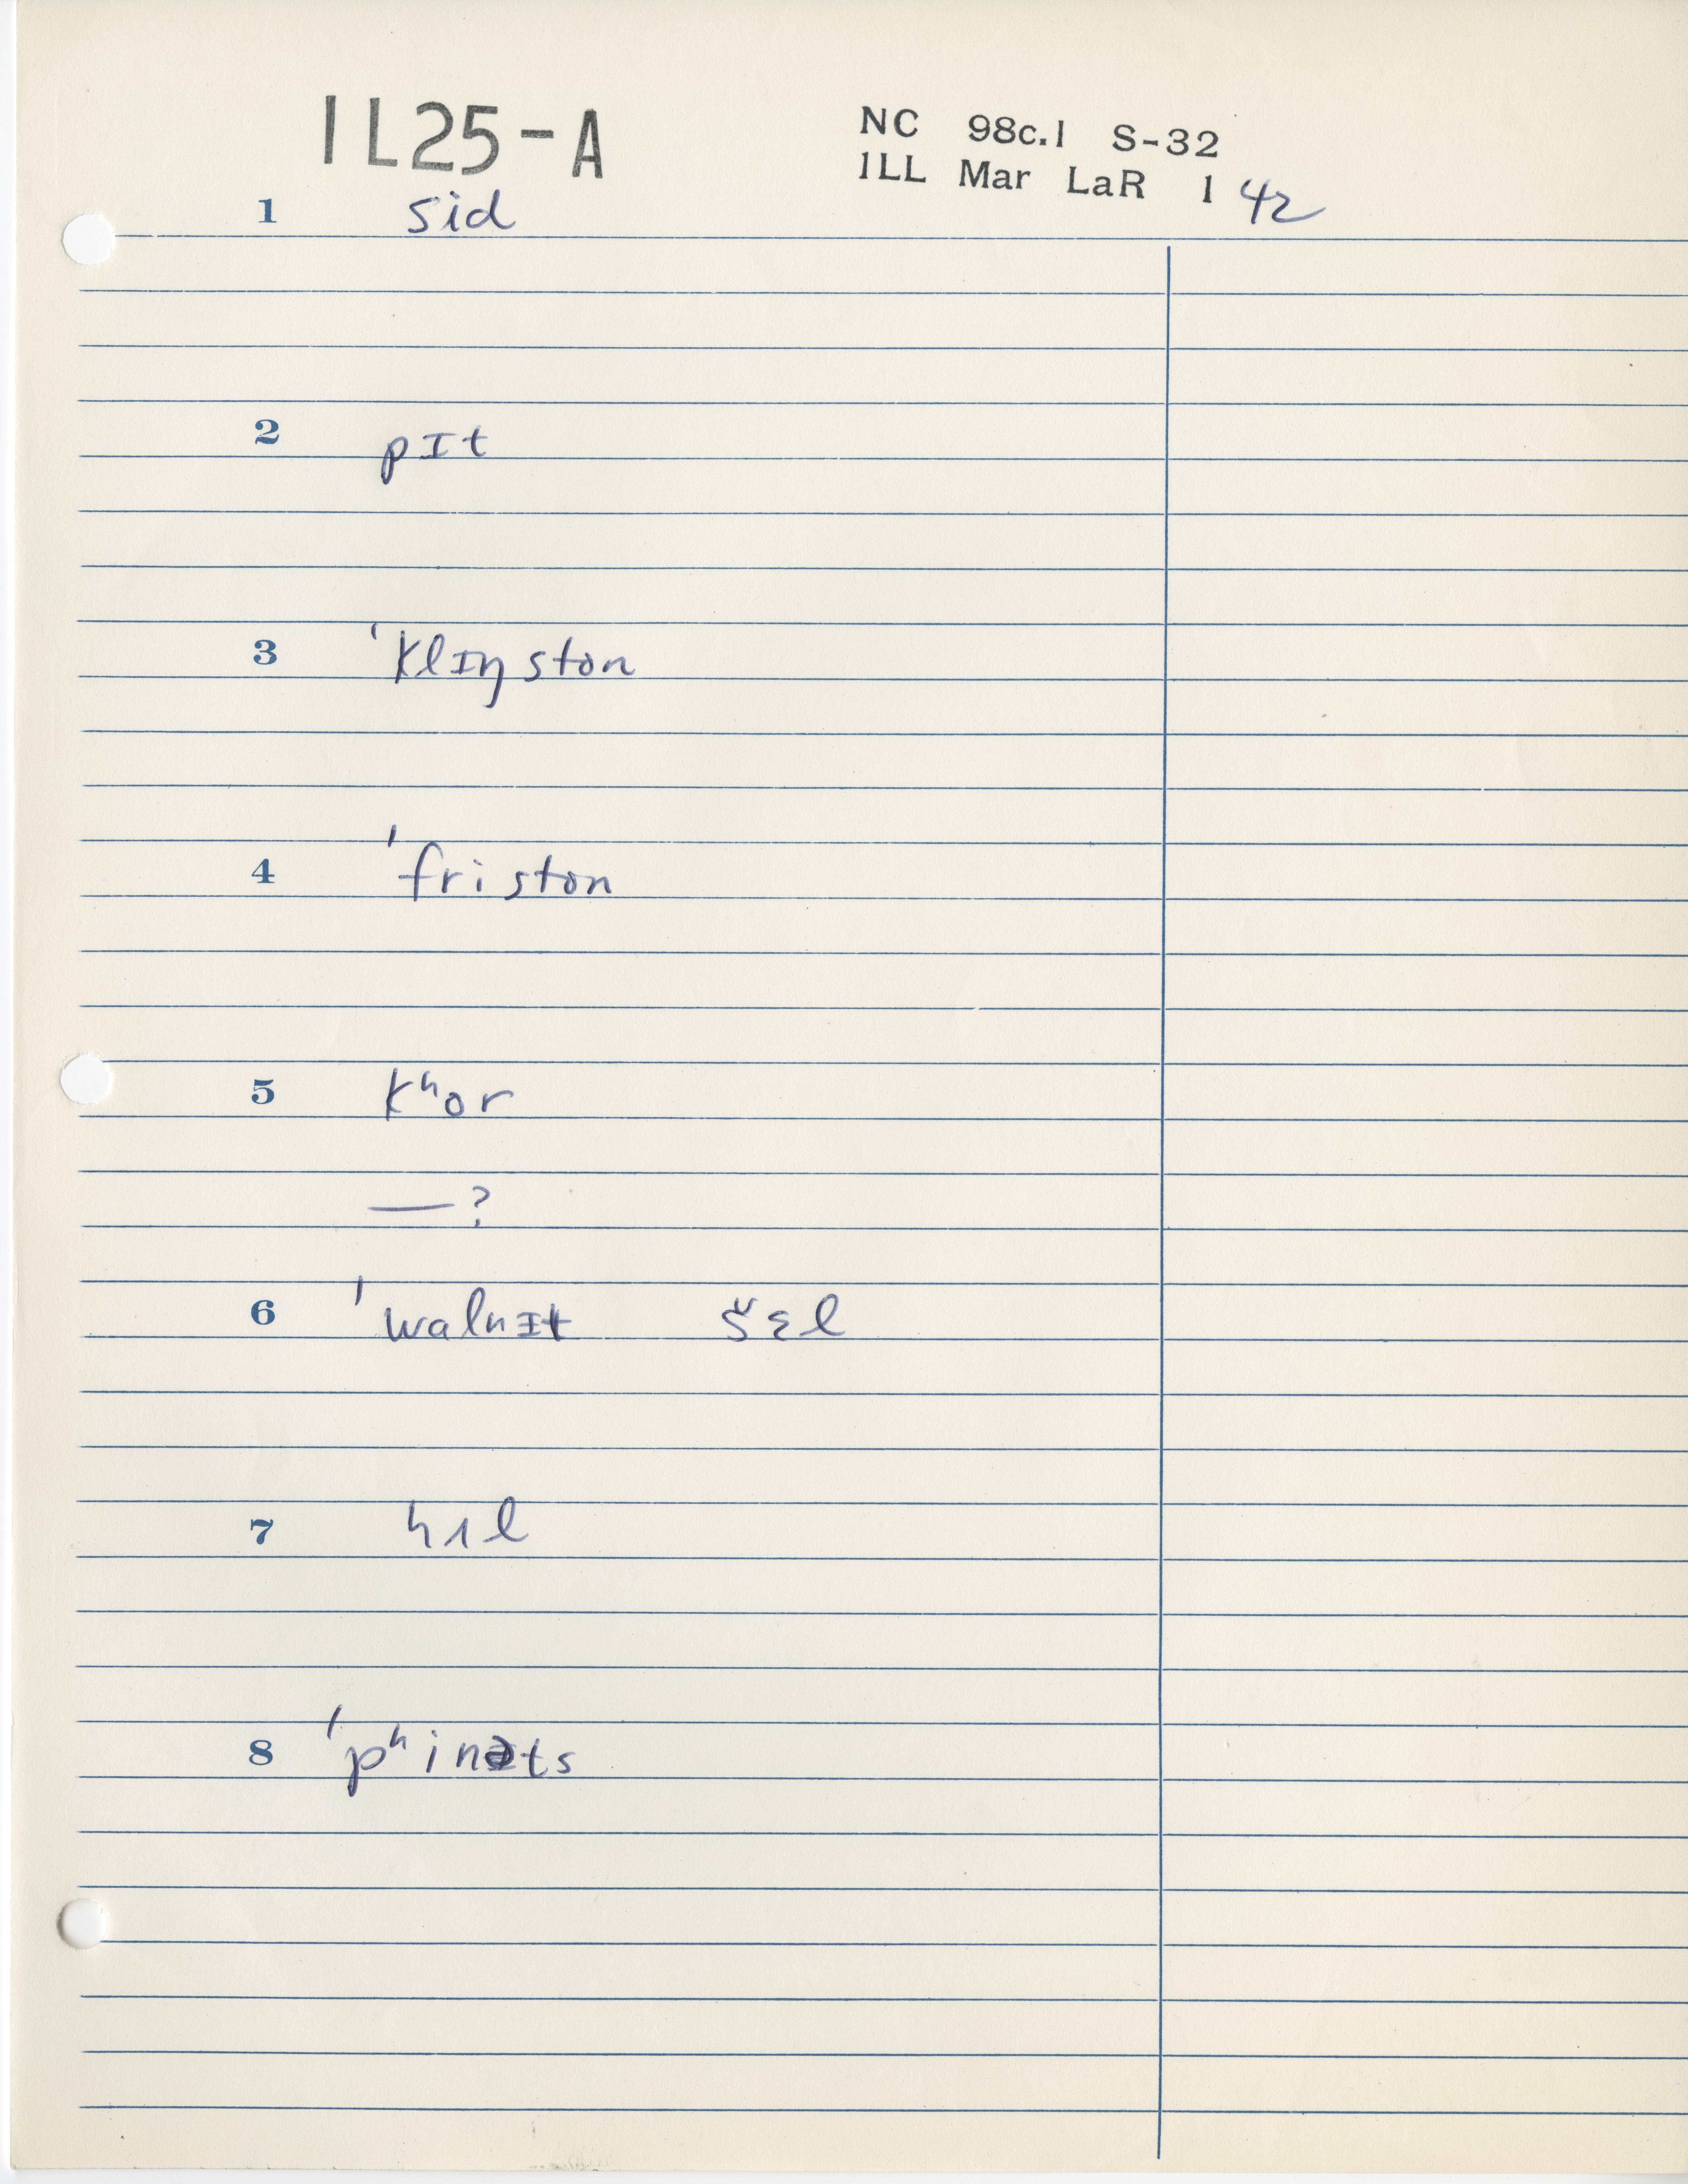 IL25-A
NC 98c.1 S-32
ILL Mar LaR 1 42
1 sid
2 pɪt
3 ˈklɪŋston
4 ˈfriston
5 kʰor
—?
6 ˈwalnɪt šɛl
7 hɪl
8 ˈpʰinəts